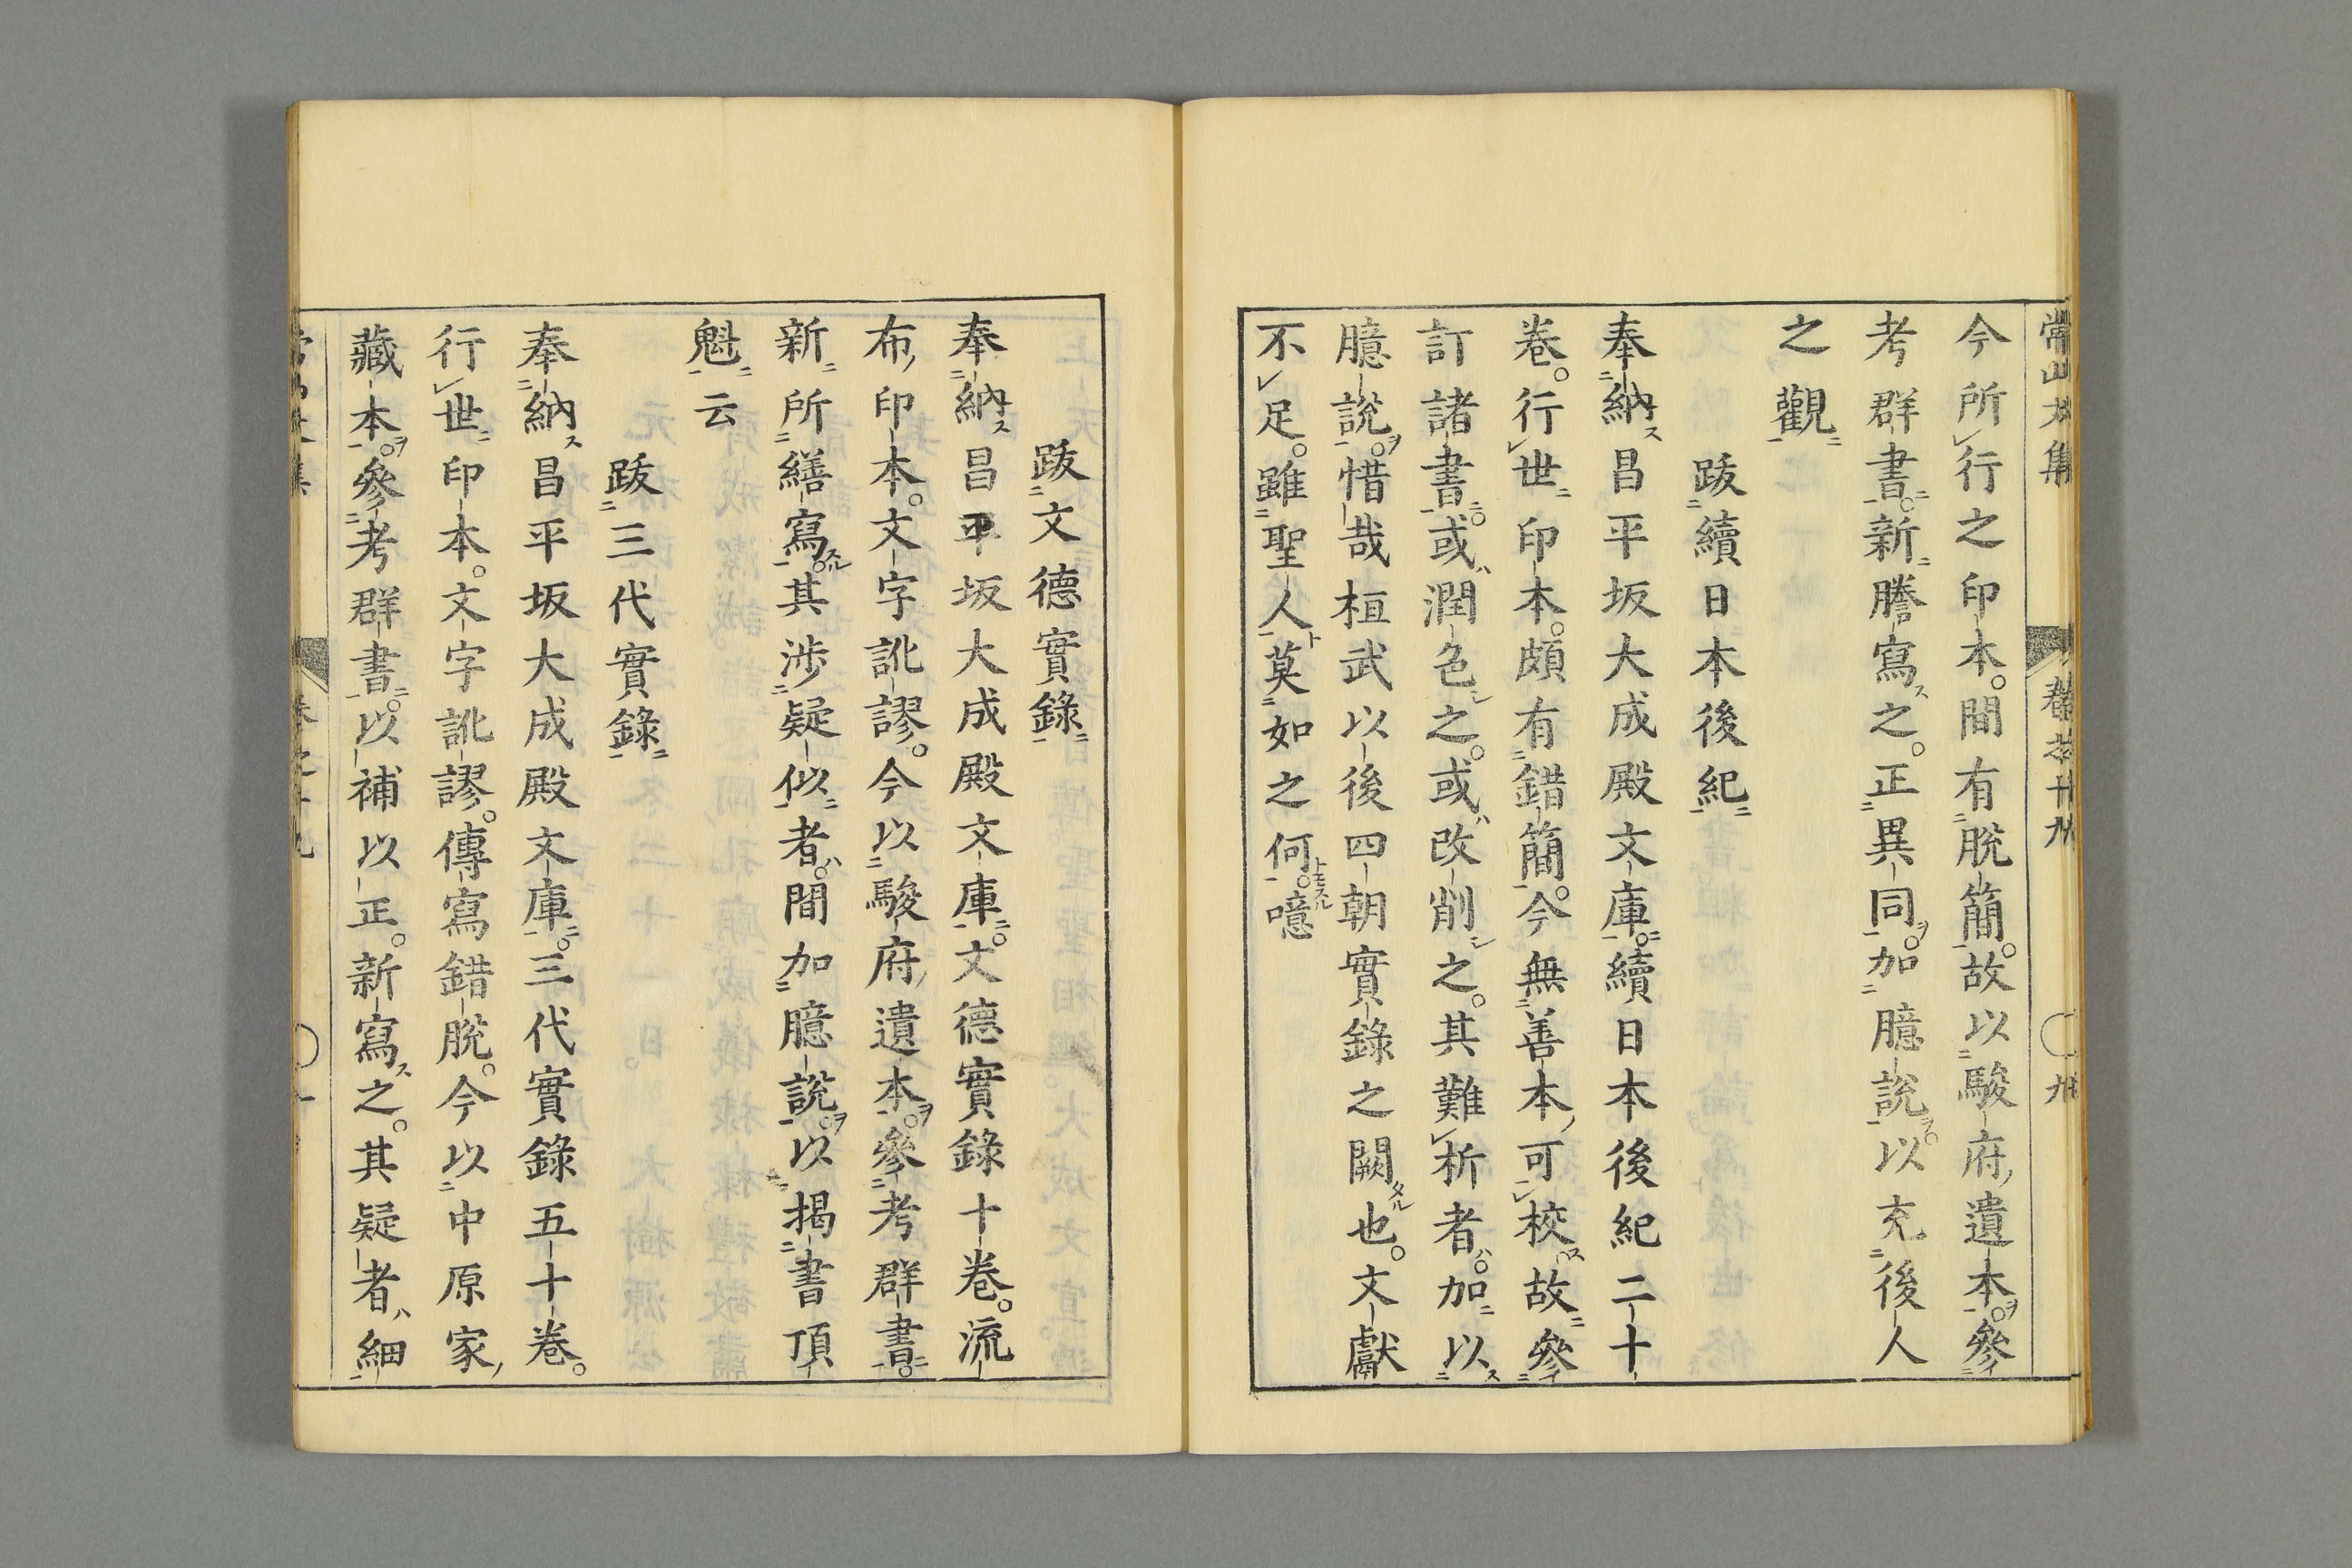 今所行之印本。間有脫簡。故以駿府遺本。參
考群書。新謄寫之。正異同。加臆說。以充後人
之觀
跋續日本後紀
奉納昌平坂大成殿文庫。續日本後紀二十
卷。行世印本。頗有錯簡。今無善本可校。故參
訂諸書。或潤色之。或改削之。其難析者。加以
臆說。惜哉桓武以後四朝實錄之闕也。文獻
不足。雖聖人莫如之何。噫
跋文德實錄
奉納昌平坂大成殿文庫。文德實錄十卷。流
布印本。文字訛謬。今以駿府遺本。參考群書。
新所繕寫。其涉疑似者。間加臆說。以揭書頂
魁云
跋三代實錄
奉納昌平坂大成殿文庫。三代實錄五十卷。
行世印本。文字訛謬。傳寫錯脫。今以中原家
藏本。參考群書。以補以正。新寫之。其疑者細